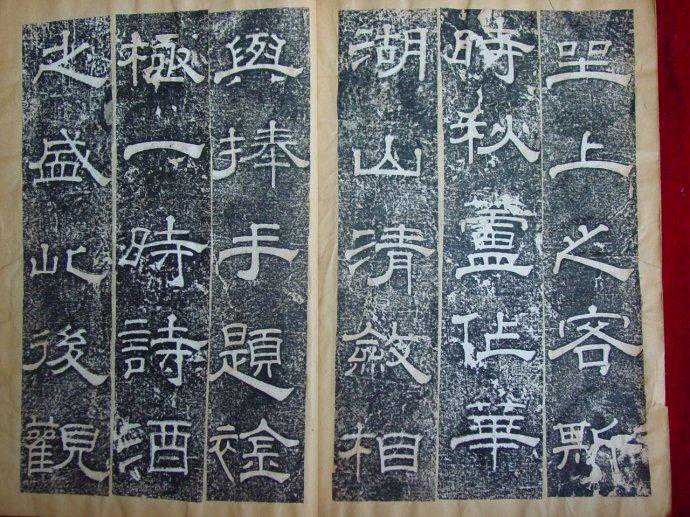 坐上之客斯
時秋蘆作華
湖山清斂相
與捧手題襟
極一時詩酒
之盛此後觀